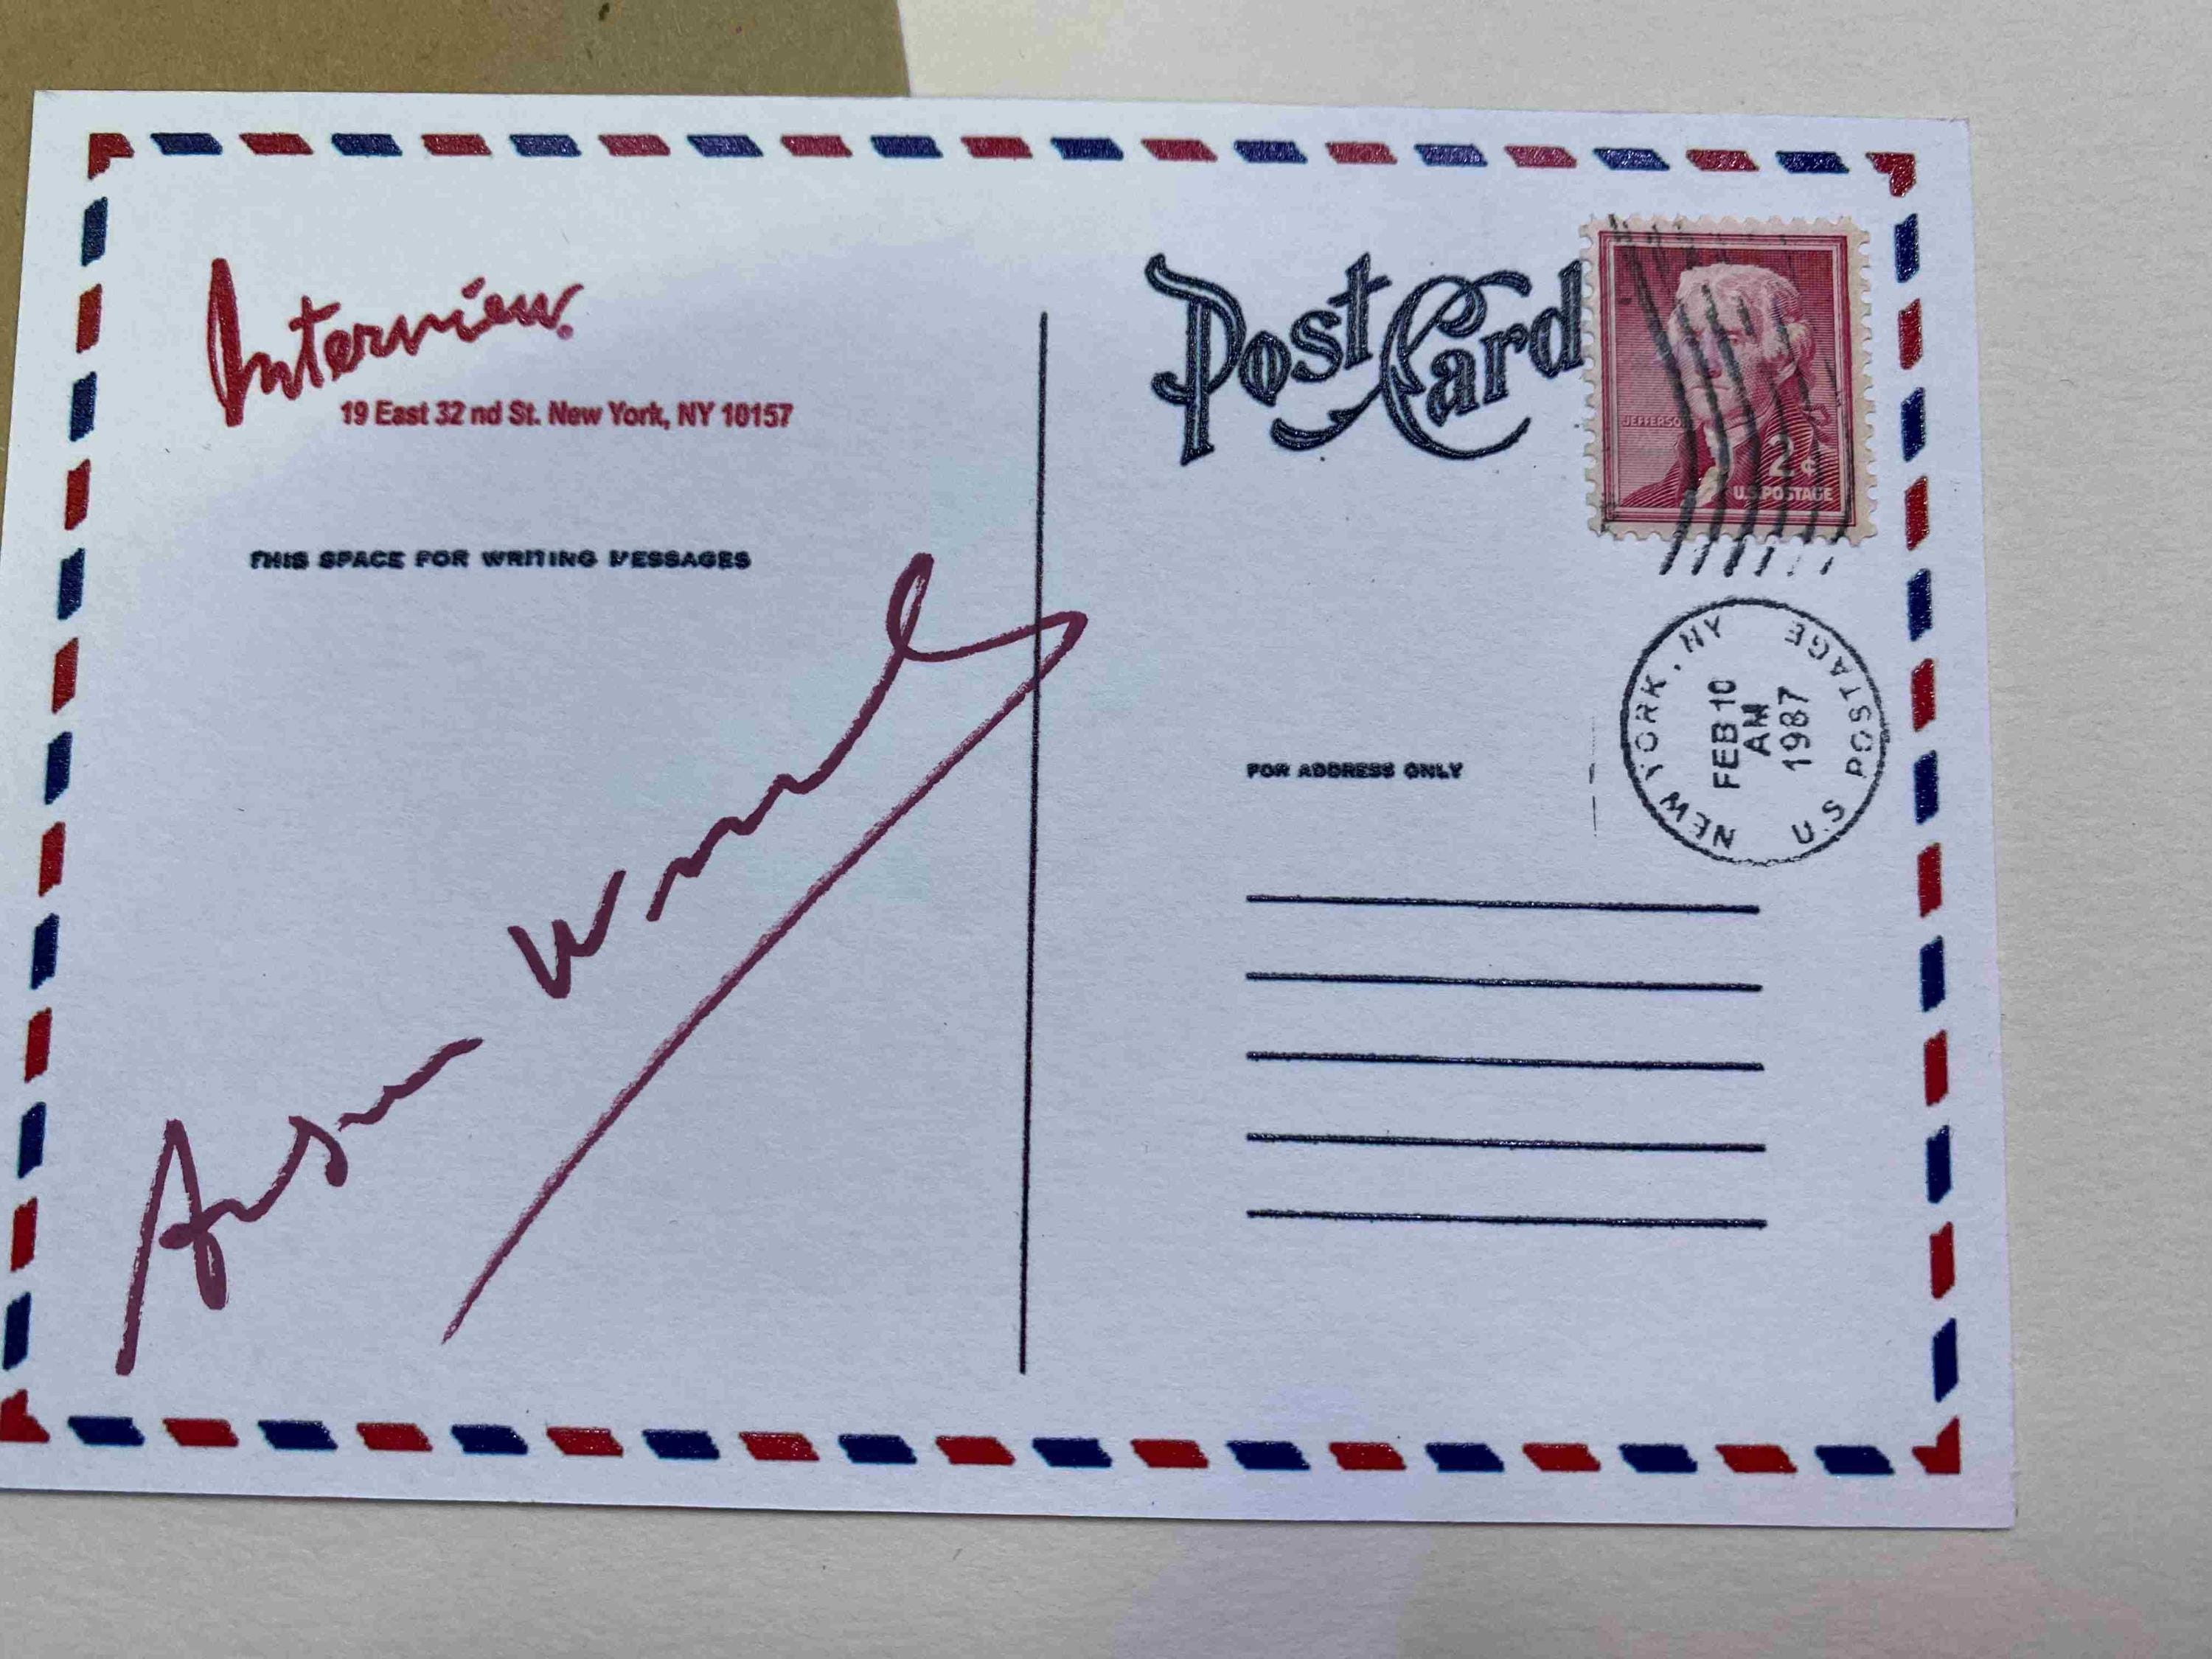 Interview
19 East 32 nd St. New York, NY 10157
THIS SPACE FOR WRITING MESSAGES
Post Card
JEFFERSO
2¢
U.S. POSTAGE
FOR ADDRESS ONLY
NEW YORK, NY
FEB 10
AM
1987
U.S POSTAGE